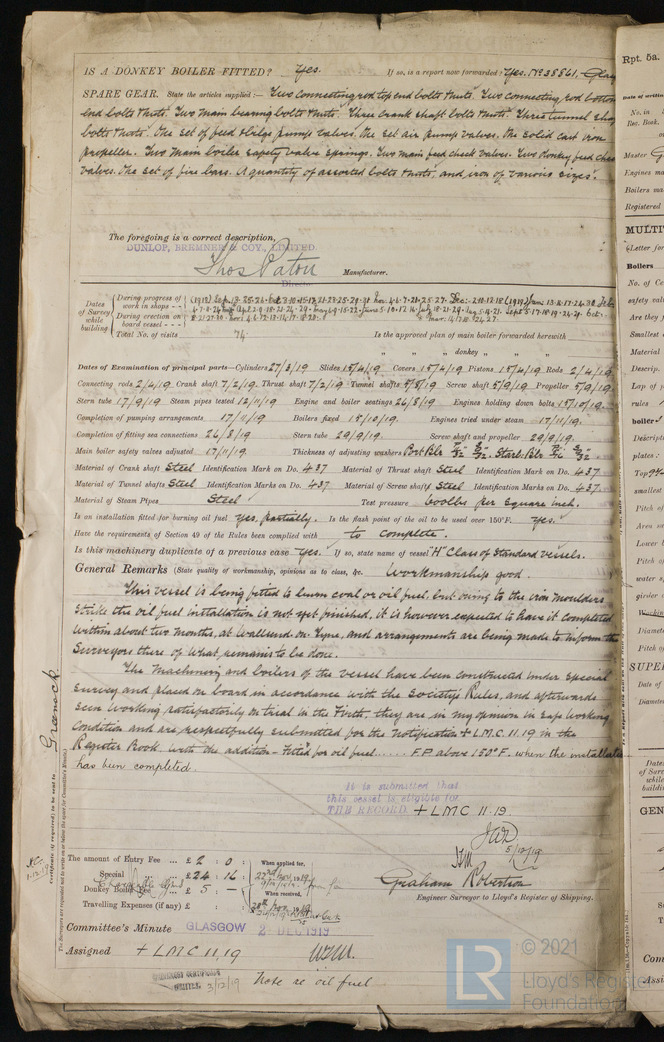 IS A DONKEY BOILER FITTED? Yes. If so, is a report now forwarded? Yes. No 38861.
SPARE GEAR. State the articles supplied:— Two connecting rod top end bolts & nuts. Two connecting rod bottom
end bolts & nuts. Two main bearing bolts & nuts. Three crank shaft bolts & nuts. Three tunnel shaft
bolts & nuts. One set of feed & bilge pump valves. One set air pump valves. One solid cast iron
propeller. Two main boiler safety valve springs. Two main feed check valves. Two donkey feed check
valves. One set of fire bars. A quantity of assorted bolts & nuts, and iron of various sizes.
The foregoing is a correct description,
DUNLOP, BREMNER & COY., LIMITED
Thos Paton Manufacturer.
Director
Dates of Survey while building
During progress of work in shops - -
During erection on board vessel - - -
Total No. of visits 74 Is the approved plan of main boiler forwarded herewith
" " " donkey " " "
Dates of Examination of principal parts—Cylinders 27/3/19 Slides 15/4/19 Covers 15/4/19 Pistons 15/4/19 Rods 2/4/19
Connecting rods 2/4/19 Crank shaft 7/2/19 Thrust shaft 7/2/19 Tunnel shafts 5/8/19 Screw shaft 5/9/19 Propeller 5/9/19
Stern tube 17/9/19 Steam pipes tested 12/11/19 Engine and boiler seatings 26/8/19 Engines holding down bolts 15/10/19
Completion of pumping arrangements 17/11/19 Boilers fixed 15/10/19 Engines tried under steam 17/11/19.
Completion of fitting sea connections 26/8/19 Stern tube 29/9/19. Screw shaft and propeller 29/9/19.
Main boiler safety valves adjusted 17/11/19. Thickness of adjusting washers Port Blr Starb. Blr
Material of Crank shaft Steel Identification Mark on Do. 437 Material of Thrust shaft Steel Identification Mark on Do. 437
Material of Tunnel shafts Steel Identification Marks on Do. 437 Material of Screw shafts Steel Identification Marks on Do. 437
Material of Steam Pipes Steel Test pressure 600lbs per square inch.
Is an installation fitted for burning oil fuel Yes, partially. Is the flash point of the oil to be used over 150°F. Yes.
Have the requirements of Section 49 of the Rules been complied with to complete.
Is this machinery duplicate of a previous case Yes. If so, state name of vessel "H" Class of Standard vessels.
General Remarks (State quality of workmanship, opinions as to class, &c. Workmanship good.
This vessel is being fitted to burn coal or oil fuel, but owing to the iron moulders
strike the oil fuel installation is not yet finished, it is however expected to have it completed
within about two months, at Wallsend-on-Tyne, and arrangements are being made to inform the
Surveyors there of what remains to be done.
The Machinery and boilers of the vessel have been constructed under special
survey and placed on board in accordance with the Society's Rules, and afterwards
seen working satisfactorily on trial in the Firth, they are in my opinion in safe working
condition and are respectfully submitted for the Notification + L.M.C. 11.19 in the
Register Book. With the addition - Fitted for oil fuel ...... F.P. above 150°F. when the installation
has been completed.
It is submitted that
this vessel is eligible for
THE RECORD. + LMC 11.19
5/12/19
The amount of Entry Fee ... £ 2 : 0 : When applied for,
Special ... £ 24 : 16 :
Donkey Boiler Fee ... £ 5 : — : When received,
Travelling Expenses (if any) £ : :
Graham Robertson
Engineer Surveyor to Lloyd's Register of Shipping.
Committee's Minute GLASGOW 2 - DEC 1919
Assigned + LMC 11,19
3/12/19 Note re oil fuel
Certificate (if required) to be sent to Greenock
The Surveyors are requested not to write on or below the space for Committee's Minute.
Rpt. 5a.
No. in
Reg. Book.
Master
Engines ma
Boilers ma
Registered
MULTI
Letter for
Boilers
No. of Ce
safety val
Are they
Smallest
Material
Descrip.
Lap of p
rules
boiler
Descript
plates :
smallest
Pitch of
Area of
Lower
Pitch of
water s
girder
Working
Diamete
Pitch of
SUPER
Date of
Diamete
Dates
of Surv
while
buildi
GEN
Com
Assi
LR
© 2021
Lloyd's Register
Foundation